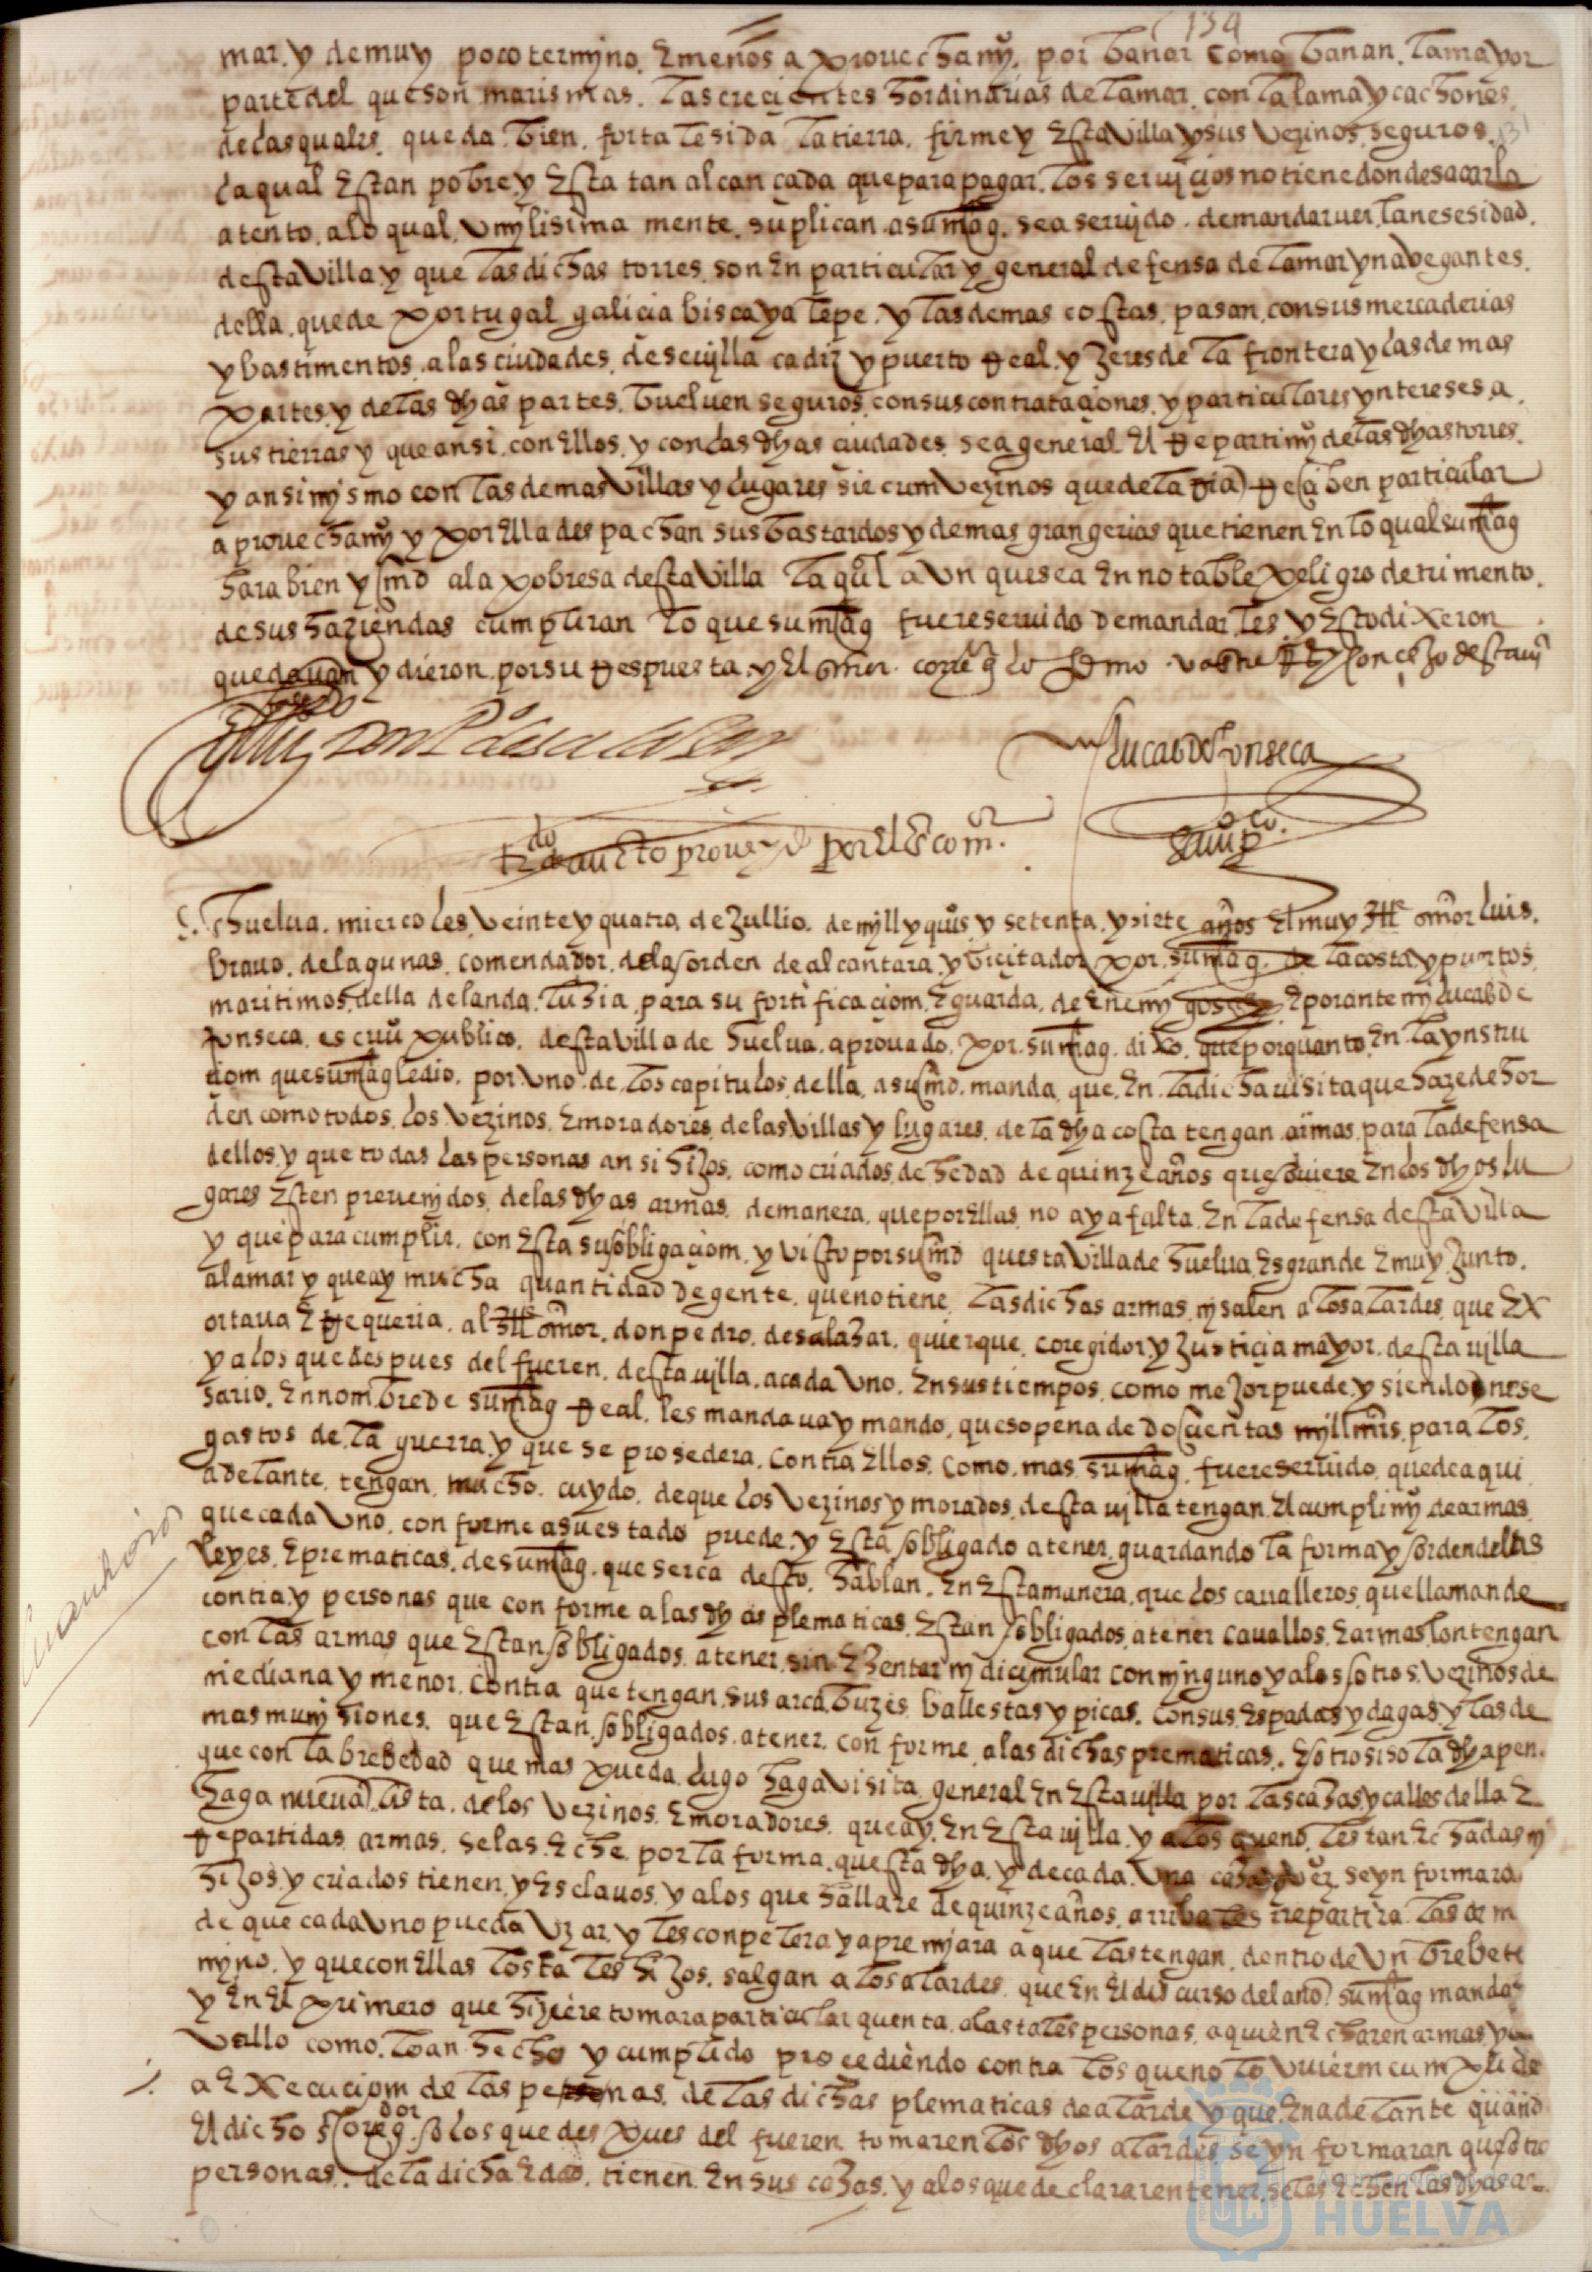 134
mar. y de muy poco termyno. E menos aprouechamyº. por bañar como bañan. la mayor
parte del que son marismas. las crecientes hordinarias de la mar. con la lama y cachones
de las quales. queda bien. fortalesida la tierra. firme y Esta Villa y sus vezinos seguros.
la qual Es tan pobre y Esta tan alcançada que para pagar. los seruyçios no tiene donde sacarla
atento. a lo qual. vmylisima mente. suplican a su mag. sea seruydo. de mandar uer. la nesesidad.
desta Villa y que las dichas torres. son En particular y general defensa de la mar y nabegantes.
della. que de portugal galicia biscaya lepe. y las demas costas. pasan. con sus mercaderias
y bastimentos. a las ciudades. de seuylla cadiz y puerto Real. y Xeres de la frontera y las demas
partes. y de las dhas partes. buelben seguros. con sus contrataçiones. y particulares ynteresses. a.
sus tierras y que ansi. con Ellos. y con las dhas ciudades. sea general El Repartimyº de las dhas torres.
y ansimysmo con las demas Villas y lugares sircumvezinos que de la Ria Resiben particular
aprouechamyº y por Ella despachan sus bastardos y demas grangerias que tienen En lo qual su mag
hara bien y md a la pobresa desta Villa la ql aun que sea En notable peligro detrimento.
de sus haziendas cumpliran lo que su mag fuere seruido de mandarles y Esto dixeron
que dauan y dieron. por su Respuesta. y El señor. correg lo firmo
don Pº de salazar
lucas de fonseca
escriuº puco.
trdo de aucto proueydo por El sr comr.
En huelua. miercoles. veinte y quatro. de Jullio. de myll y quios y setenta. y siete años El muy Illº señor luis.
brauo. de lagunas. comendador. de la orden de alcantara. y vicitador por. su mag. de la costa y puertos
maritimos. della del andaluzia. para su fortificaçiom. E guarda. de Enemygos E por ante my lucas de
fonseca. escriuº publico. desta villa de huelua. aprouado. por. su mag. dixo. que por quanto. En la ynstru
çiom que su mag le dio. por vno. de los capitulos. della. a su md. manda que. En la dicha uisita que haze de hor
den como todos. los vezinos. E moradores. de las villas y lugares. de la dha costa tengan armas. para la defensa
dellos. y que todas las personas ansi hijos. como criados. de hedad de quinze años que ouiere En los dhos lu
gares Esten preuenydos. de las dhas armas. de manera. que por Ellas no aya falta. En la defensa desta Villa
y que para cumplir. con Esta su obligaçiom. y visto por su md questa villa de huelua. Es grande E muy Junto.
a la mar y que ay mucha quantidad de gente. que no tiene. las dichas armas. ny salen a los alardes. que Ex
ortaua E Requeria. al Ille señor. don pedro. de salazar. coregidor y Justiçia mayor. desta uilla
y a los que despues del fueren. desta uylla. a cada vno. En sus tiempos. como mejor puede. y siendo nese
sario. En nombre de su mag Real. les mandaua y mando. que so pena de dosçientas myll mrs. para los.
gastos de. la guerra. y que se prosedera. contra Ellos. como. mas. su mag. fuere seruido. que de aqui
adelante. tengan. mucho. cuydo. de que los vezinos y morados. desta uilla tengan. El cumplimyº de armas.
que cada vno. conforme a su estado puede. y Esta obligado a tener. guardando la forma y orden de las
leyes. E prematicas. de su mag. que serca desto. hablan. En Esta manera. que los caualleros. que llaman de
contia. y personas que conforme a las dhas plematicas. Estan obligados a tener cauallos. E armas. lo tengan
con las armas que Estan obligados. a tener. sin Ezentar ny dicimular con mynguno y a los otros. vezinos de
mediana y menor. contia que tengan. sus arcabuzes. ballestas y picas. con sus. Espadas y dagas. y las de
mas munysiones. que Estan. obligados. a tener. conforme. a las dichas prematicas. E otrosi so la dha pen.
que con la brebedad que mas pueda. luego haga visita. general En Esta uylla por las casas y calles della E
haga nueua lista. de los vezinos. E moradores. que ay. En Esta uylla. y a los que no. les tan Echadas ny
Repartidas armas. se las Eche. por la forma. questa dha. y de cada. vna se ynformara
hijos. y criados tienen. y Esclauos. y a los que hallare de quinze años. arriba les rrepartira. las arm
de que cada vno pueda vzar. y les conpelera y apremyara a que las tengan. dentro de vn brebe te
myno. y que con Ellas los tales hijos. salgan a los alardes. que En El discurso del año. su mag manda.
y En El primero que hiziere tomara particular quenta. a las tales personas. a quien Echaren armas
vello como. lo an hecho y cumplido procediendo contra los que no lo vuieren cumplido
a Execuçiom de las penas. de las dichas plematicas de alarde y que. En adelante quand
El dicho sr coregdor. o los que despues del fueren tomaren los dhos alardes. se ynformaran que otro
personas. de la dicha Edad. tienen. En sus casas. y a los que declararen tener. se les Echen las dhas ar
Ayuntamiento de
HUELVA